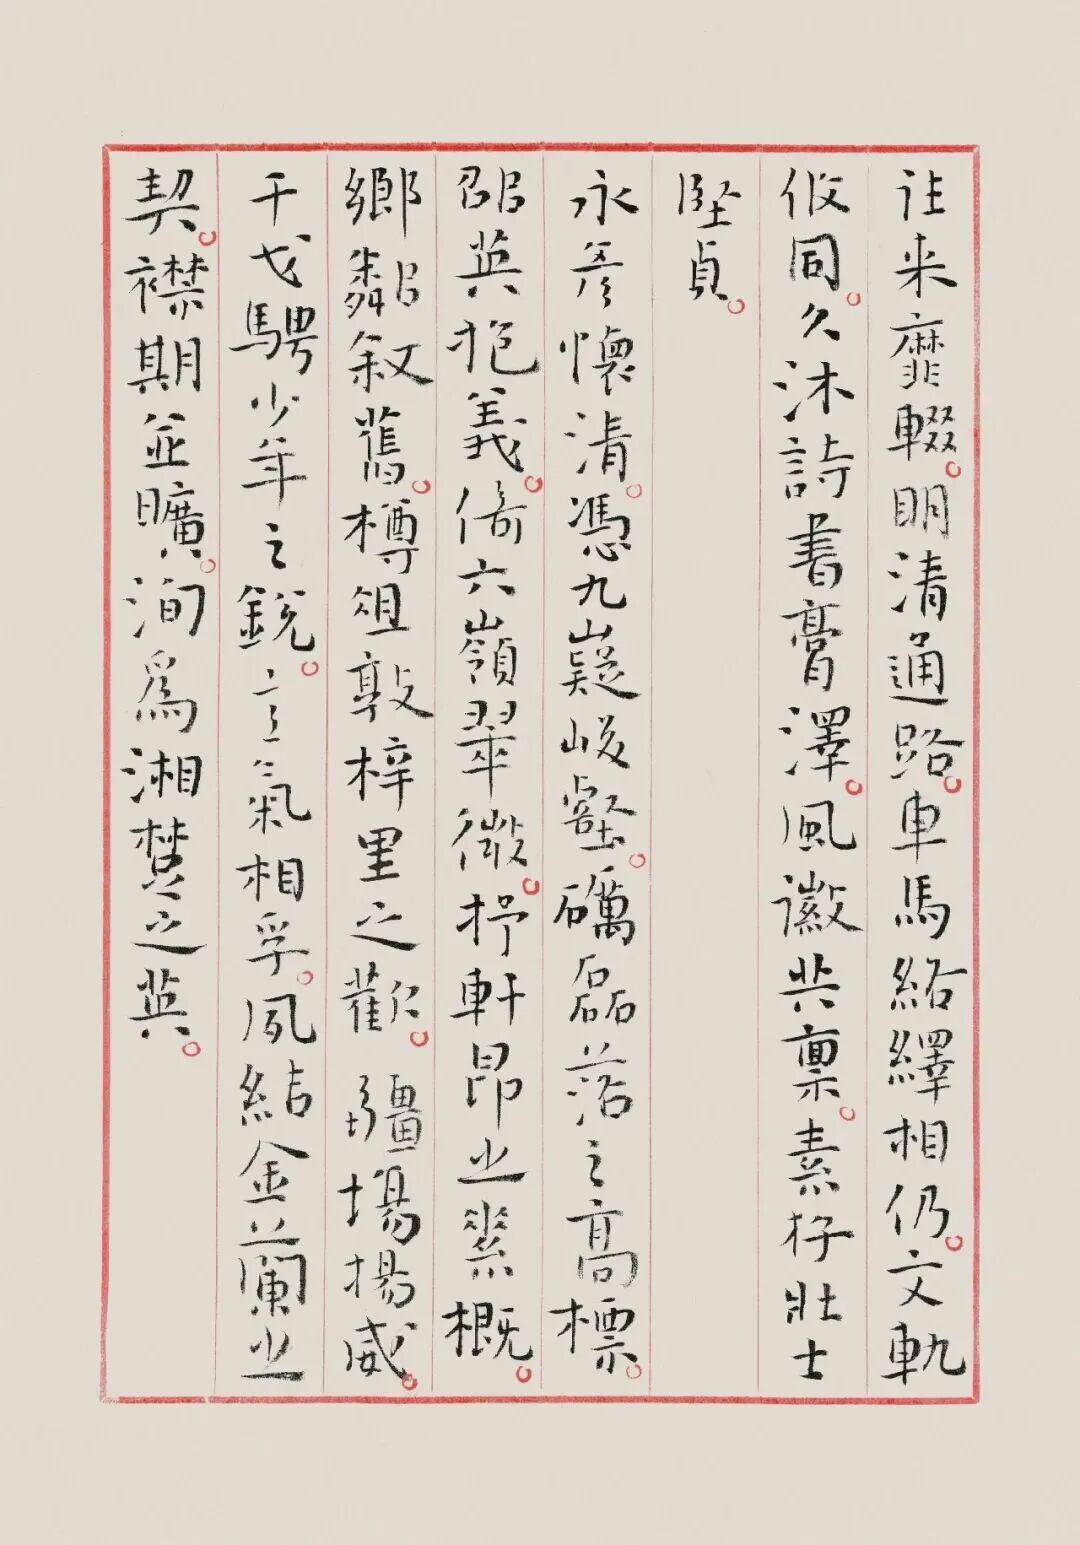 往来靡輟。明清通路。車馬絡繹相仍。文軌
攸同。久沐詩書膏澤。風徽共稟。素存壯士
堅貞。
永彥懷清。憑九嶷峻壑。礪磊落之高標。
邵英抱義。倚六嶺翠微。抒軒昂之素概。
鄉鄰叙舊。樽俎敦梓里之歡。疆埸揚威。
干戈騁少年之銳。意氣相孚。夙結金蘭之
契。襟期並曠。洵為湘楚之英。